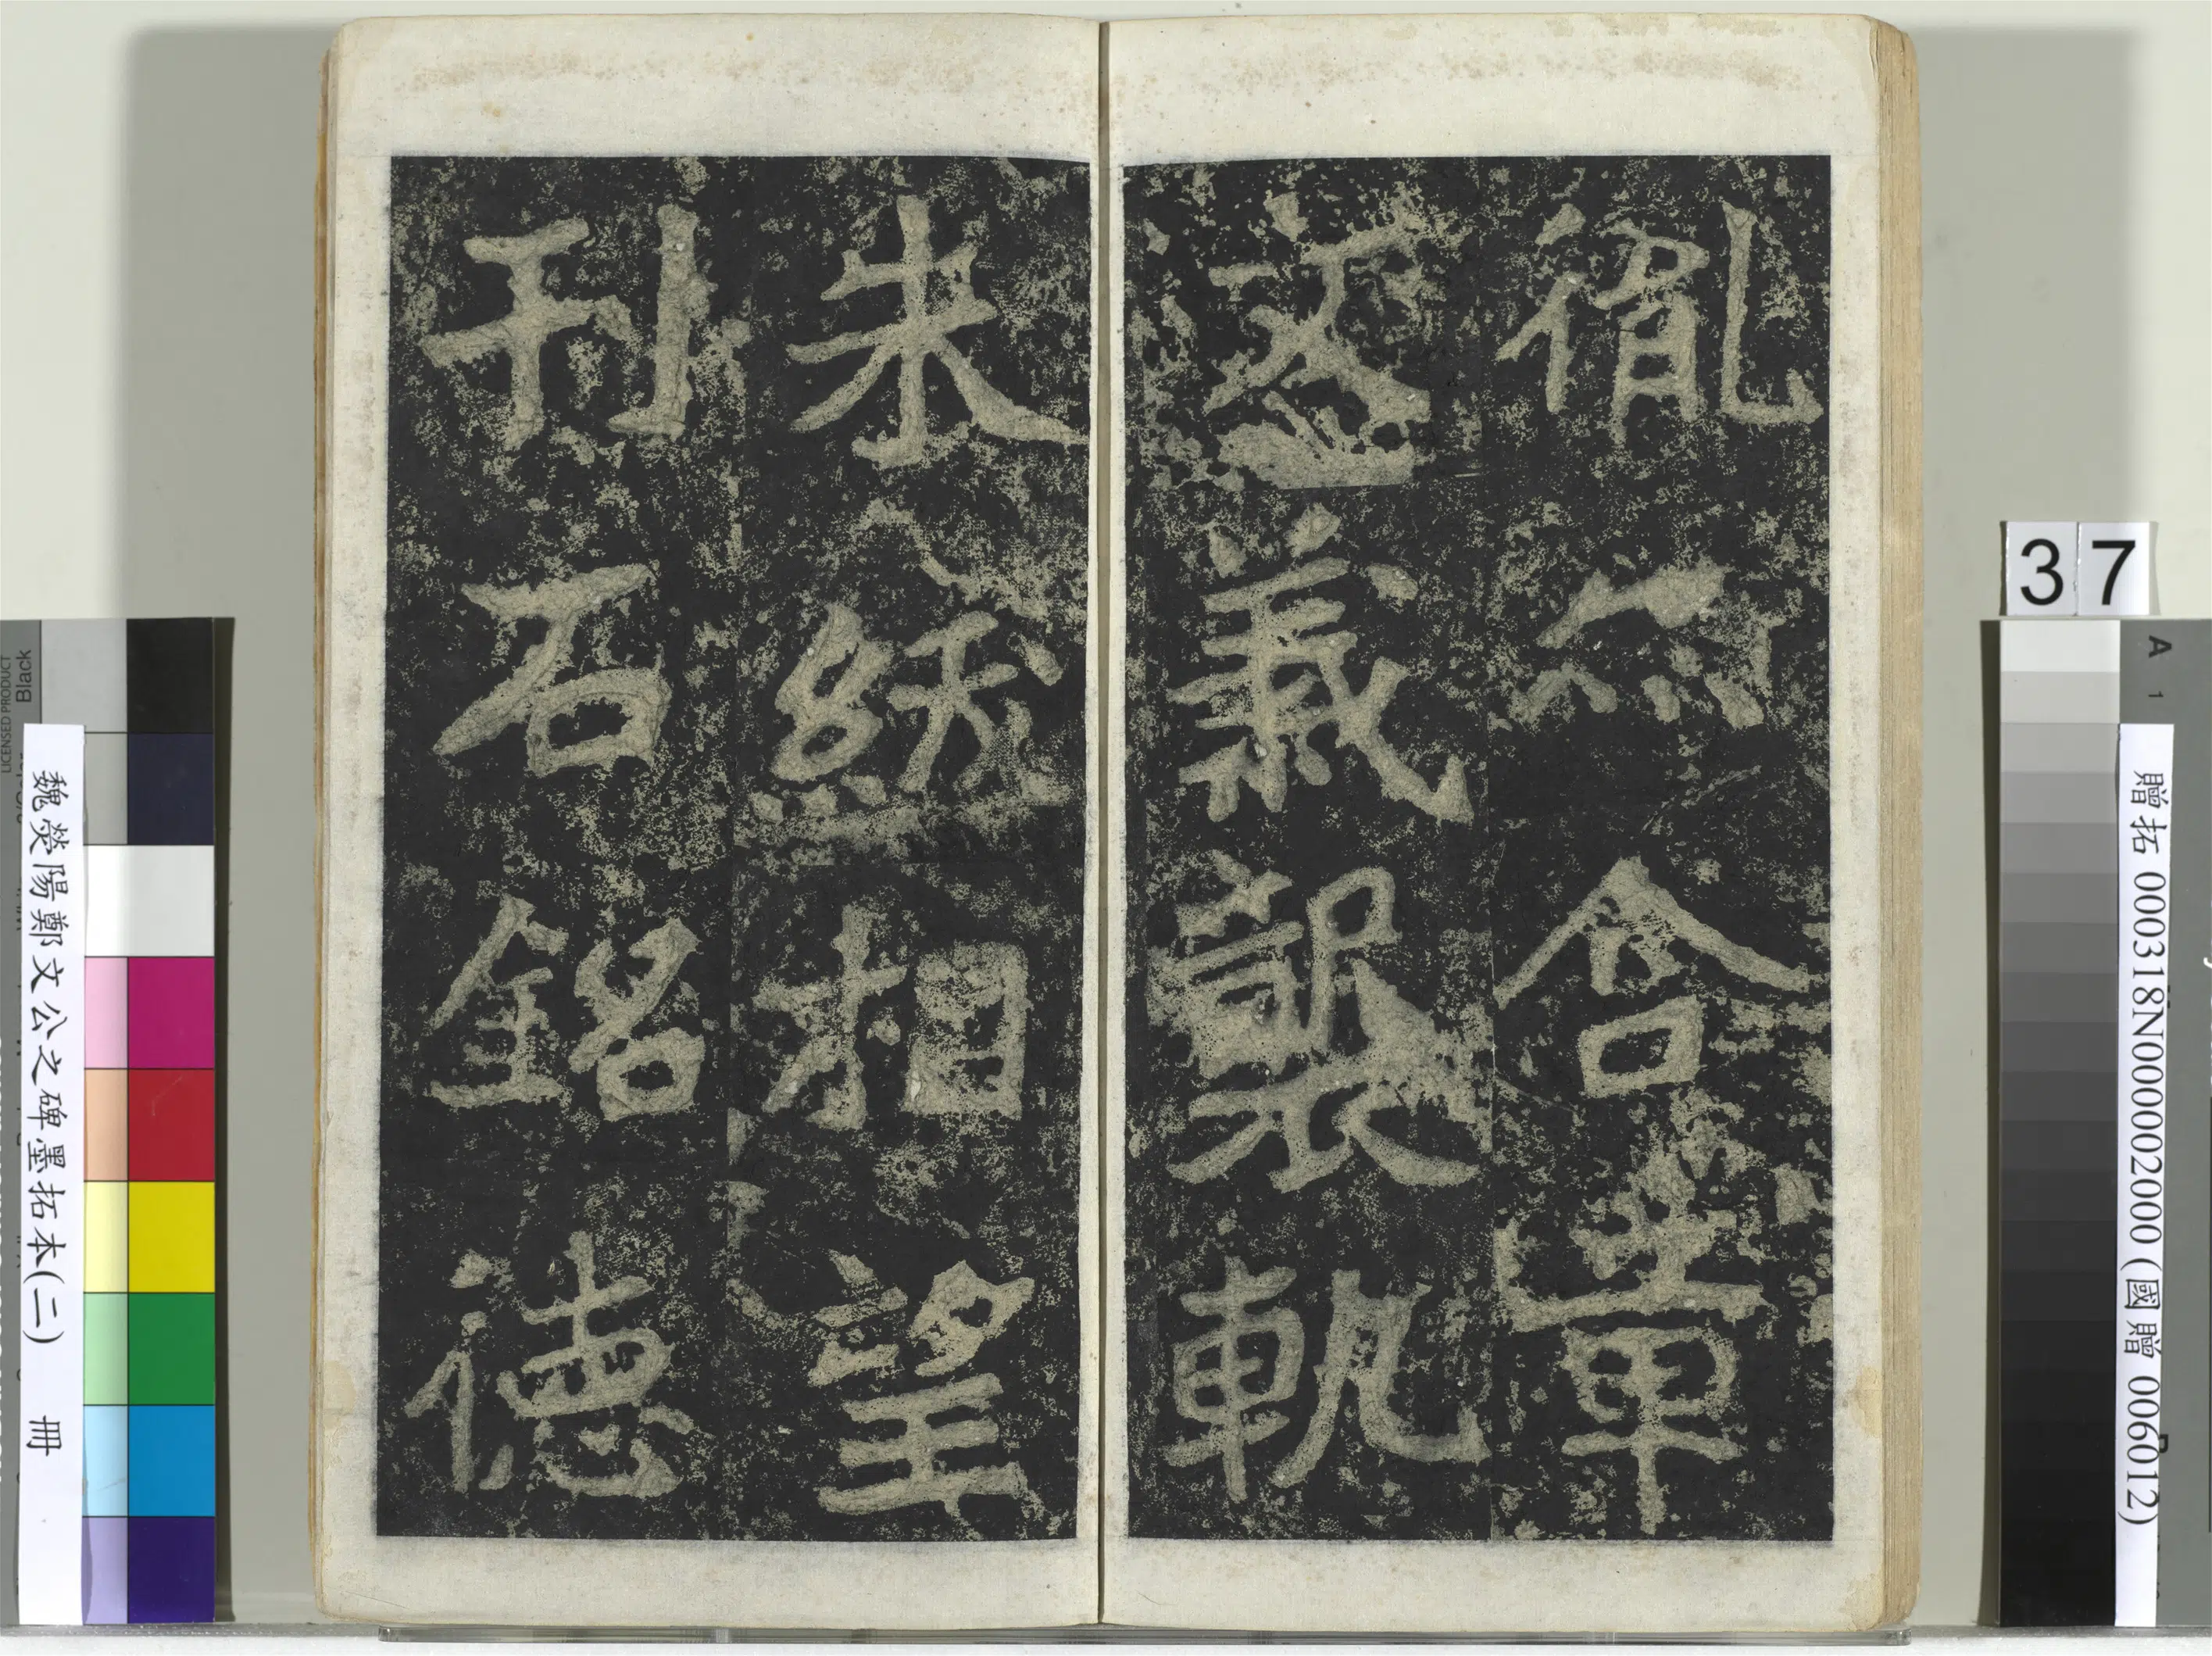 胤亦含章
文義襲軌
朱紱相望
刊石銘德
37
贈拓 000318N000002000 (國贈 006012)
魏滎陽鄭文公之碑墨拓本(二) 冊
A
1
LICENSED PRODUCT
Black